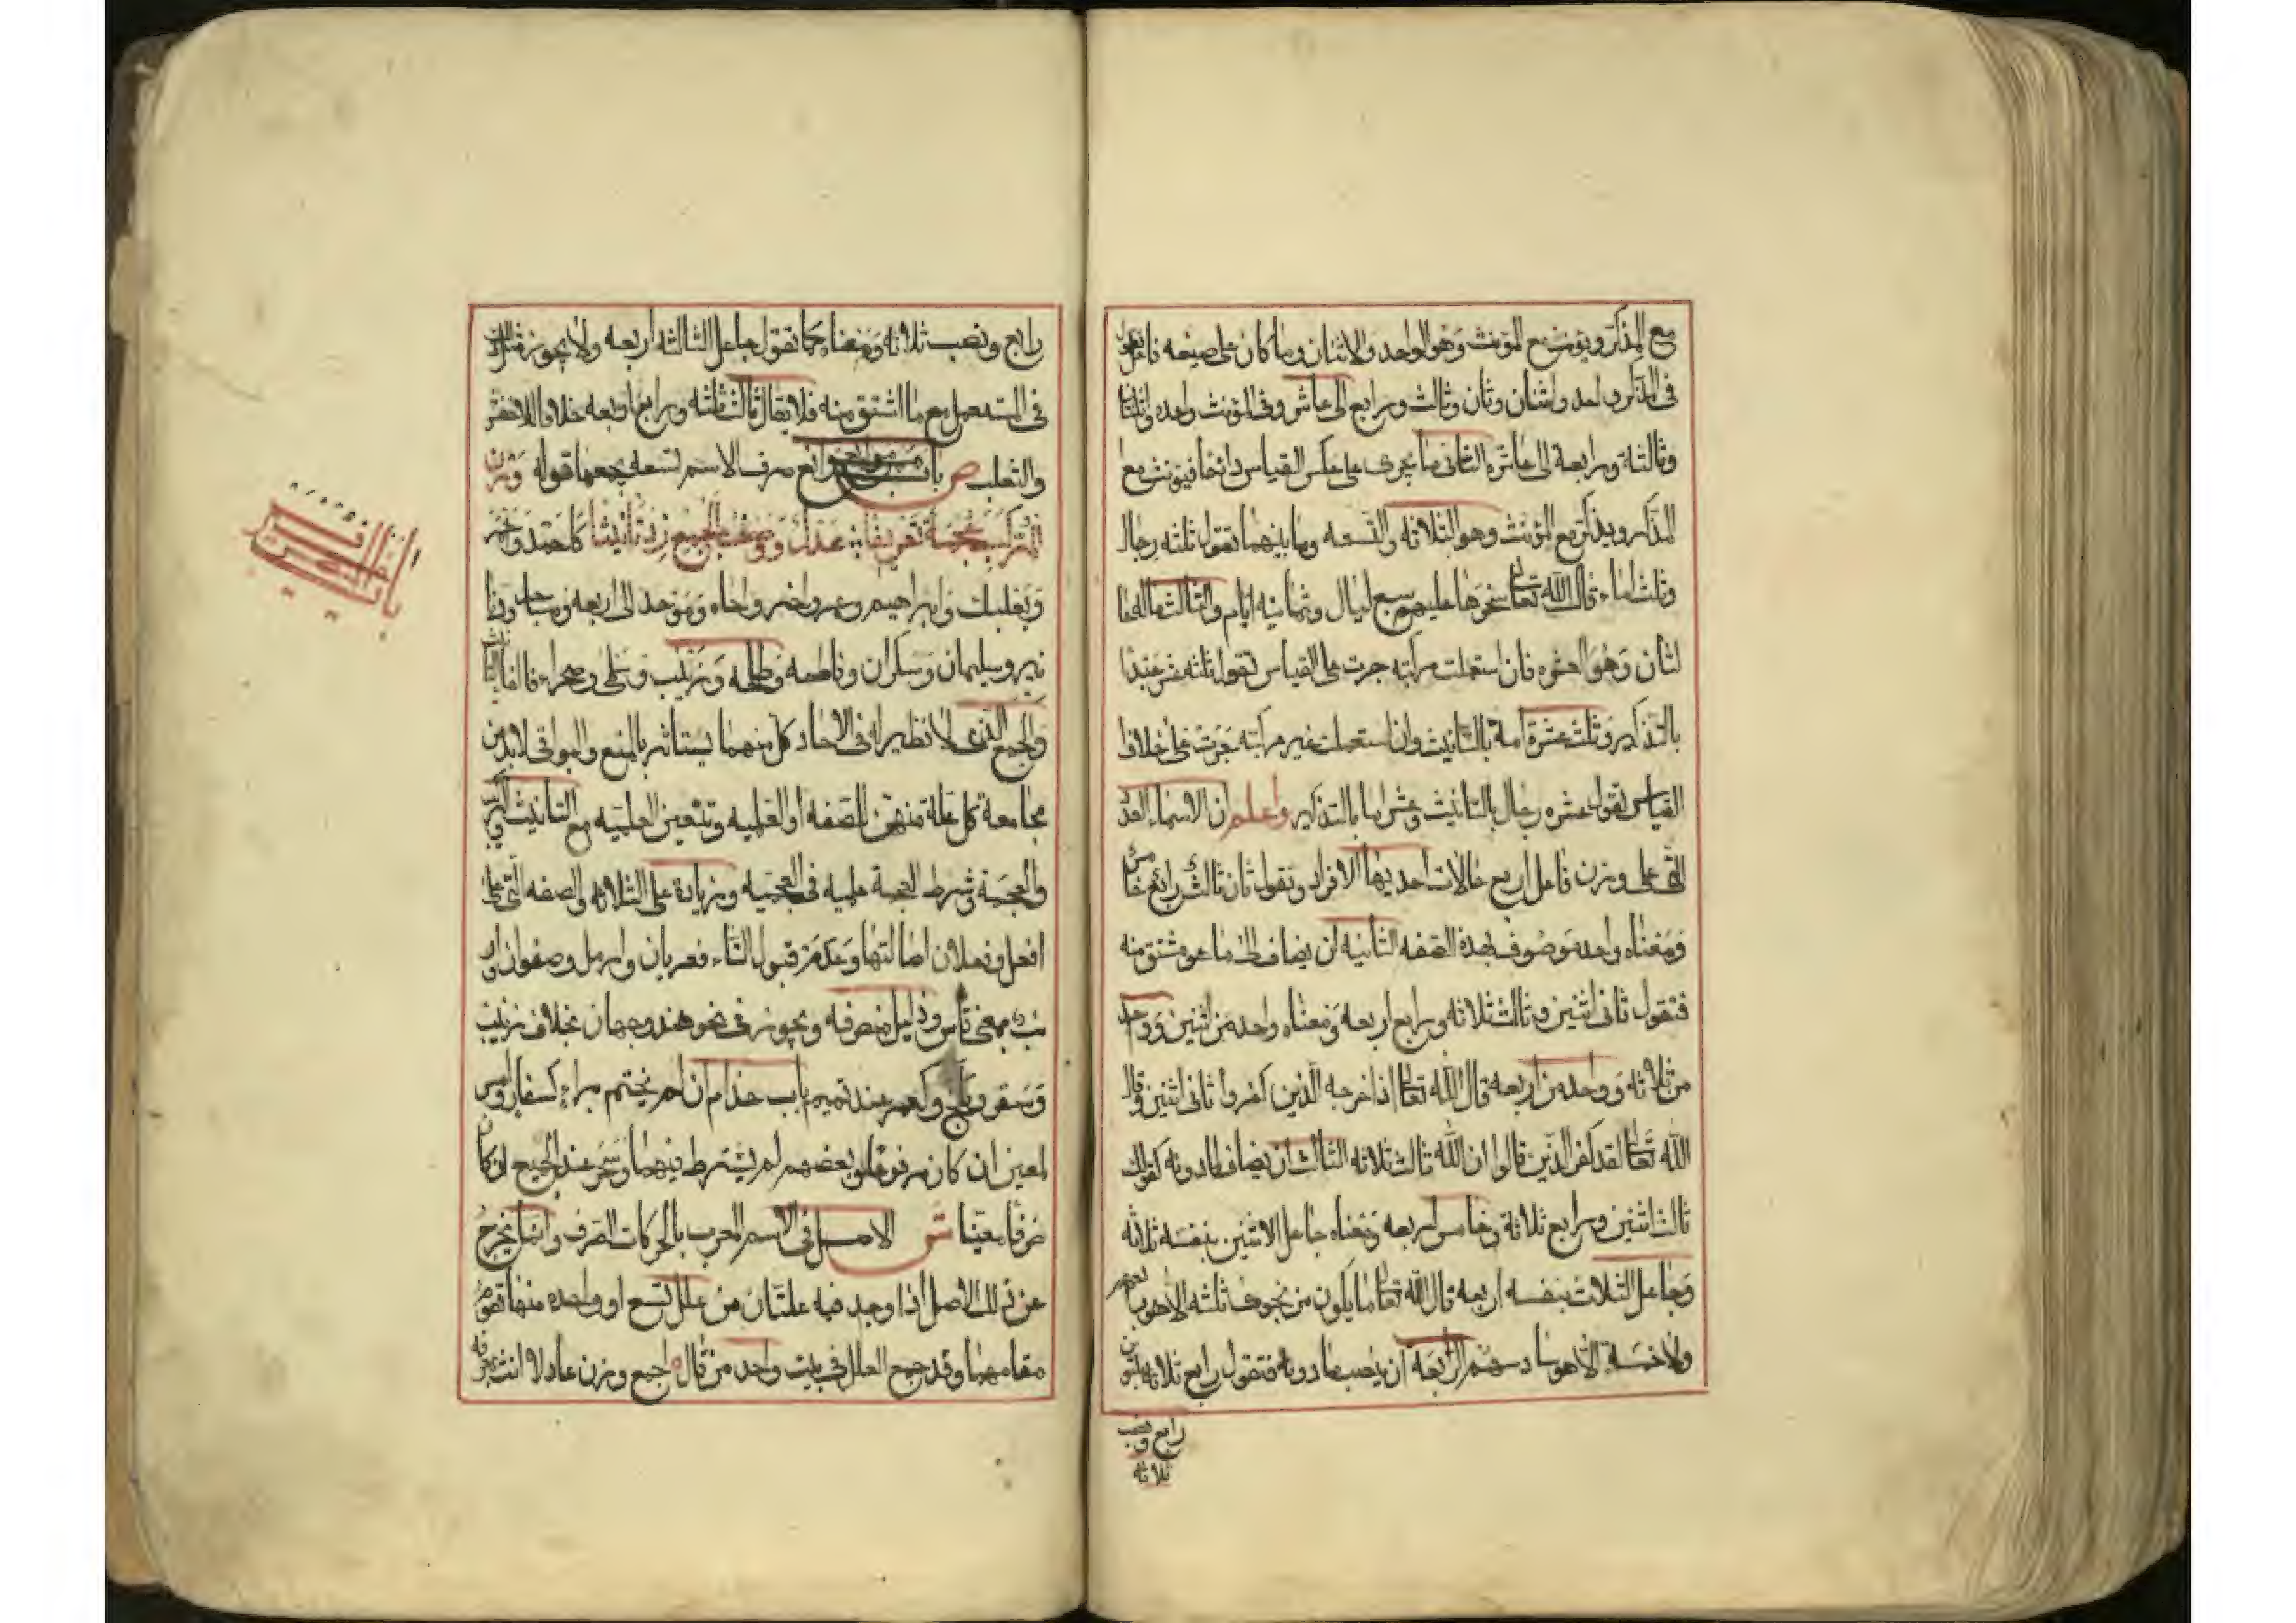 مع المذكر ويؤنث مع المؤنث وهو الواحد والاثنان وما كان على صيغه فاعل تقول
فى المذكر واحد واثنان وثان وثالث ورابع الى عاشر وفى المؤنث واحده واثنتان
وثالثة ورابعة الى عاشره الثانى ما يجرى على عكس القياس دائما فيؤنث مع
المذكر ويذكر مع المؤنث وهو الثلاثه والتسعه وما بينهما تقول ثلثه رجال
وثلث اماء قال الله تعالى سخرها عليهم سبع ليال وثمانيه ايام والثالث ماله حا
لتان وهو العشره فان استعملت مركبه جرت على القياس تقول ثلثه عشر عبدا
بالتذكير وثلث عشرة امة بالتانيث وان استعملت غير مركبه جرت على خلاف
القياس تقول عشره رجال بالتانيث وعشر اما بالتذكير واعلم ان الاسماء العدد
التى على وزن فاعل اربع حالات احديها الافراد وتقول ثان ثالث رابع خامس
ومعناه واحد موصوف بهذه الصفه الثانيه ان يضاف الى ما هو مشتق منه
فتقول ثانى اثنين وثالث ثلاثه ورابع اربعه ومعناه واحد من اثنين وواحد
من ثلاثه وواحد من اربعه قال الله تعالى اذ اخرجه الذين كفروا ثانى اثنين وقال
الله تعالى لقد كفر الذين قالوا ان الله ثالث ثلاثه الثالث ان يضاف الى ما دونه كقولك
ثالث اثنين ورابع ثلاثة وخامس اربعه ومعناه جاعل الاثنين بنفسه ثلاثه
وجاعل الثلاث بنفسه اربعه قال الله تعالى ما يكون من نجوى ثلثه الا هو رابعهم
ولا خمسة الا هو سادسهم الرابعة ان ينصب ما دونه فتقول رابع ثلاثه بتنوين
رابع ونصب
ثلاثه
رابع ونصب ثلاثه ومعناه كما تقول جاعل الثلاثه اربعه ولا يجوز مثل ذلك
فى المستعمل مع ما اشتق منه فلا يقال ثالث ثلثه ورابع اربعه خلافا للاخفش
والثعلب ص باب موانع صرف الاسم تسعه يجمعها قوله وزن
المركب عجمة تعريفها عدل ووصف الجمع زد تانيثا كاحمد واحمر
وبعلبك وابراهيم وعمر واخر واحاد وموحد الى اربعه ومساجد ودنا
نير وسليمان وسكران وفاطمه وطلحه وزينب وسلمى وصحراء فالف التانيث
والجمع الذى لا نظير له فى الاحاد كل منهما يستاثر بالمنع والبواقى لا بد من
مجامعة كل علة منهن للصفه او العلميه وتتعين العلميه مع التانيث والتركيب
والعجمة وشرط العجمة علميه فى العجميه وزيادة على الثلاثه والصفه التى على
افعل وفعلان اصالتها وعدم قبول التاء فعريان وارمل وصفوان وار
نب بمعنى قاس وذليل منصرفه ويجوز فى نحو هند وجهان بخلاف زينب
وسقر وبلخ وكعمر عند تميم باب حذام ان لم يختم براء كسفار وامس
لمعين ان كان مرفوعا وبعضهم لم يشترط فيهما وسحر عند الجميع ان كان
ظرفا معينا ش الاصل فى الاسم المعرب بالحركات الصرف وانما يخرج
عن ذلك الاصل اذا وجد فيه علتان من علل تسع او واحده منها تقوم
مقامهما وقد جمع العلل فى بيت واحد من قال اجمع وزن عادلا انث بمعرفه